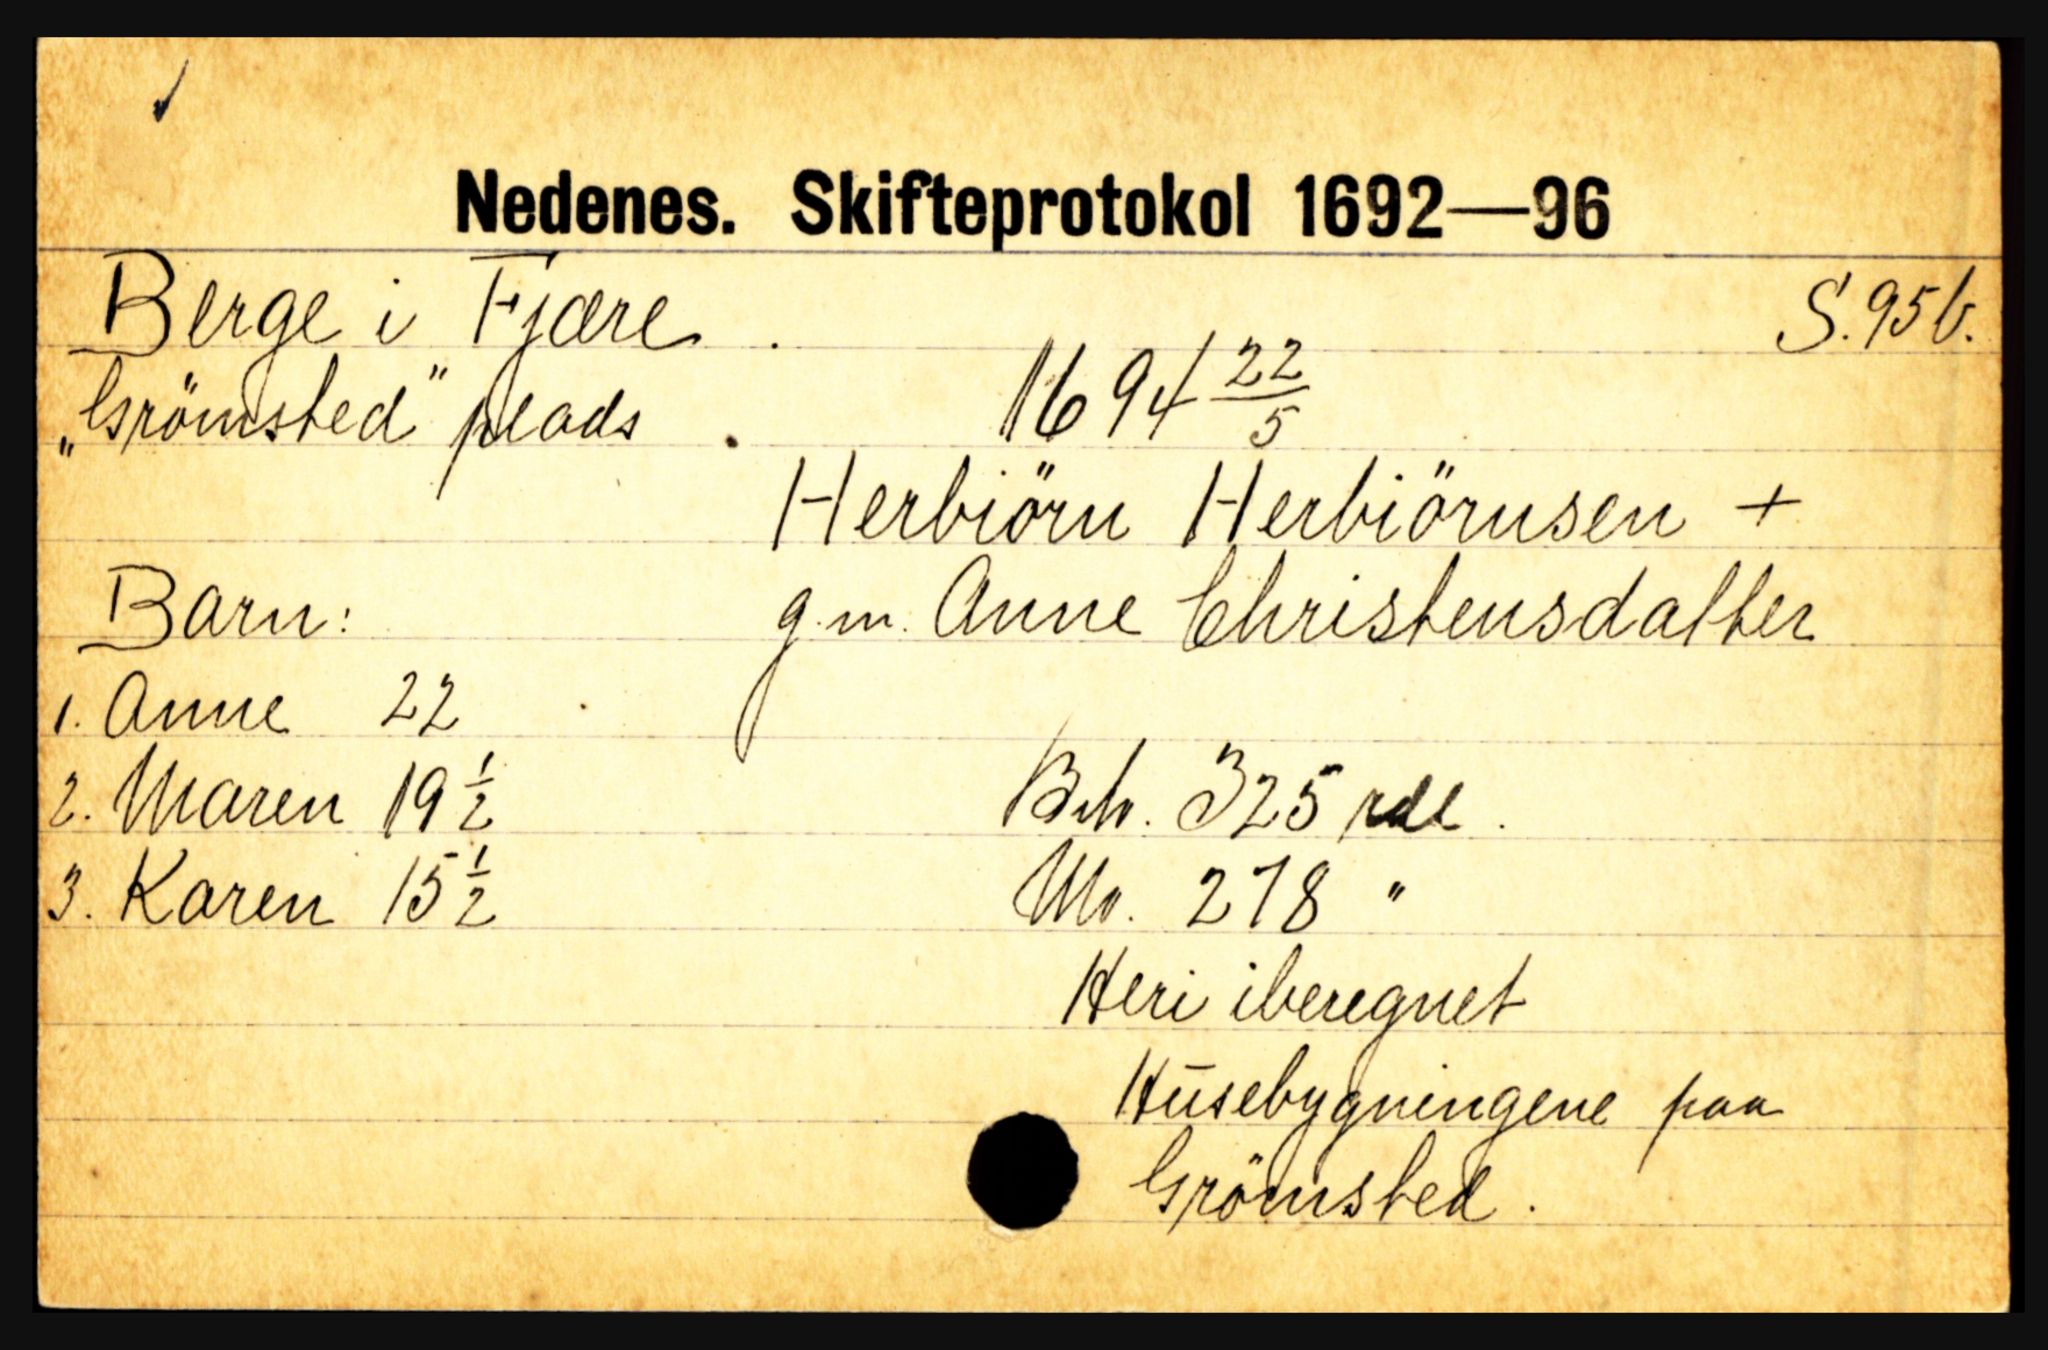 Nedenes. Skifteprotokol 1692—96
Berge i Fjære. S. 95b.
„Grömsted" plads. 1694 22/5
Herbiörn Herbiörnsen +
Barn: g.m. Anne Christensdatter
1. Anne 22
2. Maren 19 1/2 Bto. 325 rdl.
3. Karen 15 1/2 No. 278 "
Heri iberegnet
Husebygningene paa
Grömsted.